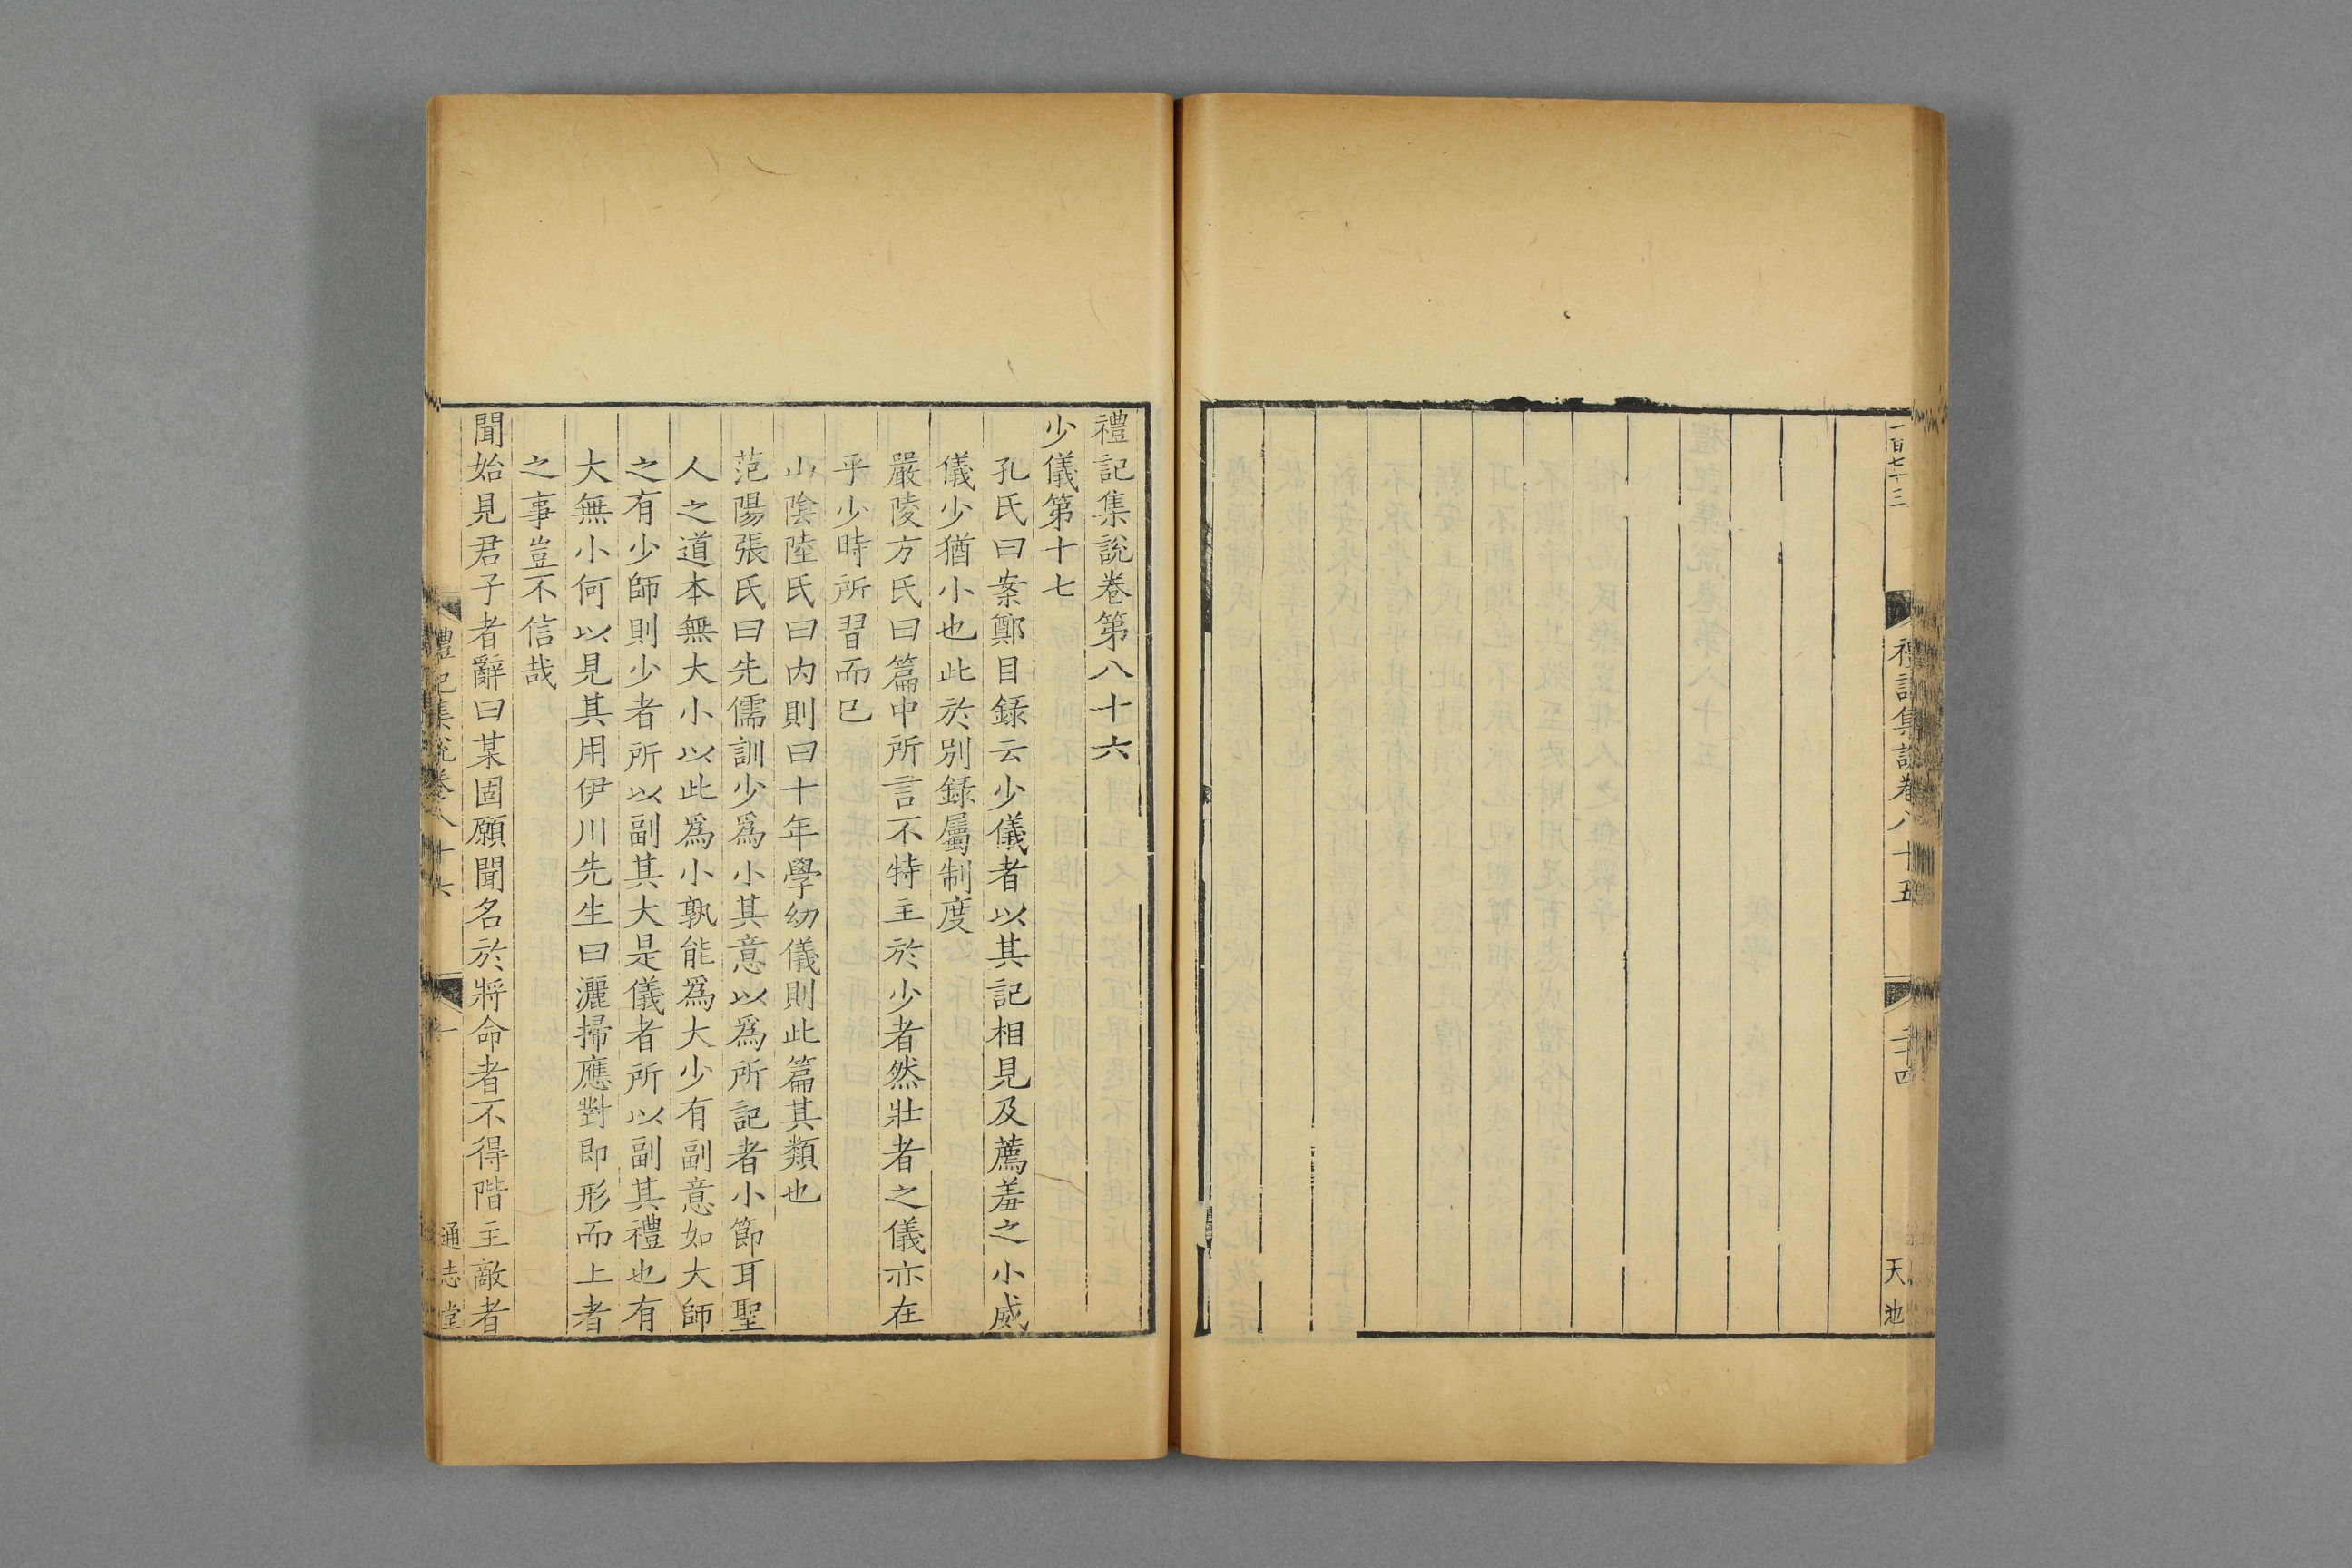 一百七十三
禮記集說卷八十五
二十四
天池
禮記集說卷第八十六
少儀第十七
孔氏曰案鄭目録云少儀者以其記相見及薦羞之小威
儀少猶小也此於別録屬制度
嚴陵方氏曰篇中所言不特主於少者然壯者之儀亦在
乎少時所習而已
山陰陸氏曰内則曰十年學幼儀則此篇其類也
范陽張氏曰先儒訓少爲小其意以爲所記者小節耳聖
人之道本無大小以此爲小孰能爲大少有副意如大師
之有少師則少者所以副其大是儀者所以副其禮也有
大無小何以見其用伊川先生曰灑掃應對即形而上者
之事豈不信哉
聞始見君子者辭曰某固願聞名於將命者不得階主敵者
禮記集說卷八十六
一
通志堂